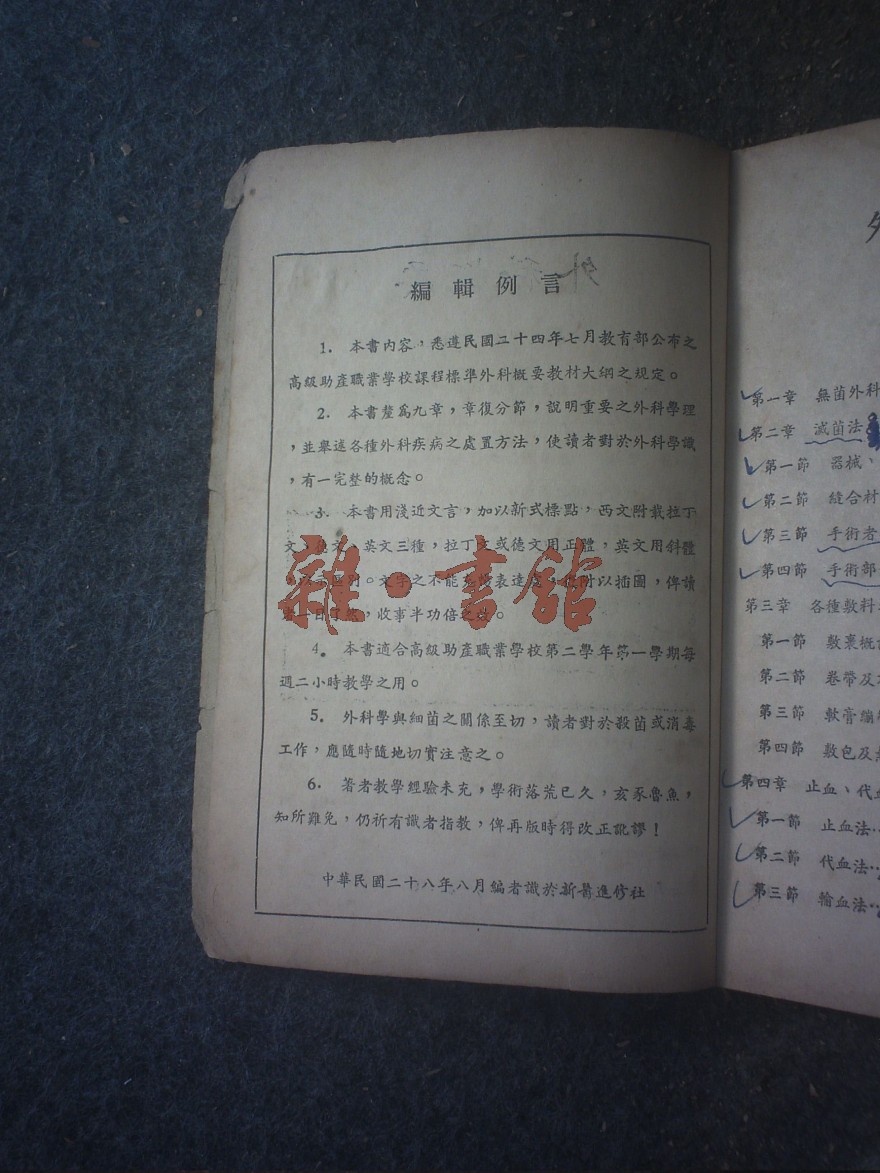 編輯例言
1. 本書內容，悉遵民國二十四年七月教育部公布之
高級助產職業學校課程標準外科概要教材大綱之規定。
2. 本書釐爲九章，章復分節，說明重要之外科學理
，並舉述各種外科疾病之處置方法，使讀者對於外科學識
，有一完整的概念。
3. 本書用淺近文言，加以新式標點，西文附載拉丁
文、德文、英文三種，拉丁文或德文用正體，英文用斜體
，以示區別。文字之不能充表達處，附以插圖，俾讀
者一目了然，收事半功倍之效。
4. 本書適合高級助產職業學校第二學年第一學期每
週二小時教學之用。
5. 外科學與細菌之關係至切，讀者對於殺菌或消毒
工作，應隨時隨地切實注意之。
6. 著者教學經驗未充，學術落荒已久，亥豕魯魚，
知所難免，仍祈有識者指教，俾再版時得改正訛謬！
中華民國二十八年八月編者識於新醫進修社
雜·書館
外
第一章 無菌外科
第二章 滅菌法
第一節 器械、
第二節 縫合材
第三節 手術者
第四節 手術部
第三章 各種敷料
第一節 敷裹概
第二節 卷帶及
第三節 軟膏繃
第四節 敷包及
第四章 止血、代血
第一節 止血法‥
第二節 代血法‥
第三節 輸血法‥